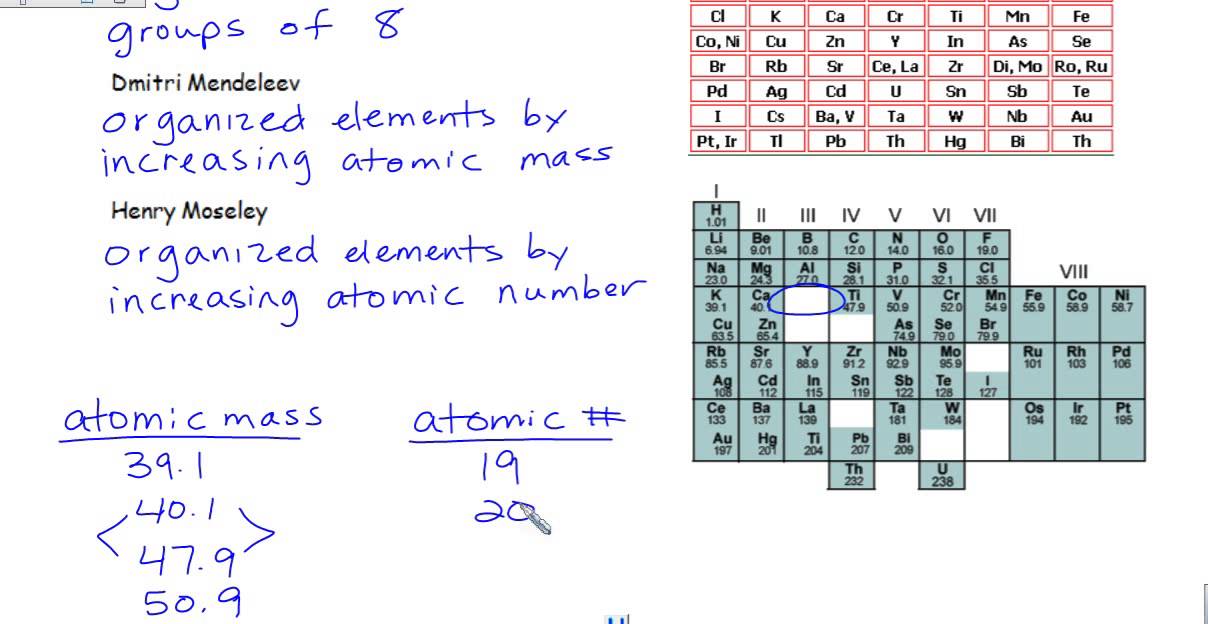 groups of 8
Dmitri Mendeleev
organized elements by
increasing atomic mass
Henry Moseley
organized elements by
increasing atomic number
atomic mass
atomic #
39.1
19
40.1
20
47.9
50.9
Cl K Ca Cr Ti Mn Fe
Co, Ni Cu Zn Y In As Se
Br Rb Sr Ce, La Zr Di, Mo Ro, Ru
Pd Ag Cd U Sn Sb Te
I Cs Ba, V Ta W Nb Au
Pt, Ir Tl Pb Th Hg Bi Th
I
H II III IV V VI VII
1.01
Li Be B C N O F
6.94 9.01 10.8 12.0 14.0 16.0 19.0
Na Mg Al Si P S Cl VIII
23.0 24.3 27.0 28.1 31.0 32.1 35.5
K Ca Ti V Cr Mn Fe Co Ni
39.1 40.1 47.9 50.9 52.0 54.9 55.9 58.9 58.7
Cu Zn As Se Br
63.5 65.4 74.9 79.0 79.9
Rb Sr Y Zr Nb Mo Ru Rh Pd
85.5 87.6 88.9 91.2 92.9 95.9 101 103 106
Ag Cd In Sn Sb Te I
108 112 115 119 122 128 127
Ce Ba La Ta W Os Ir Pt
133 137 139 181 184 194 192 195
Au Hg Ti Pb Bi
197 201 204 207 209
Th U
232 238